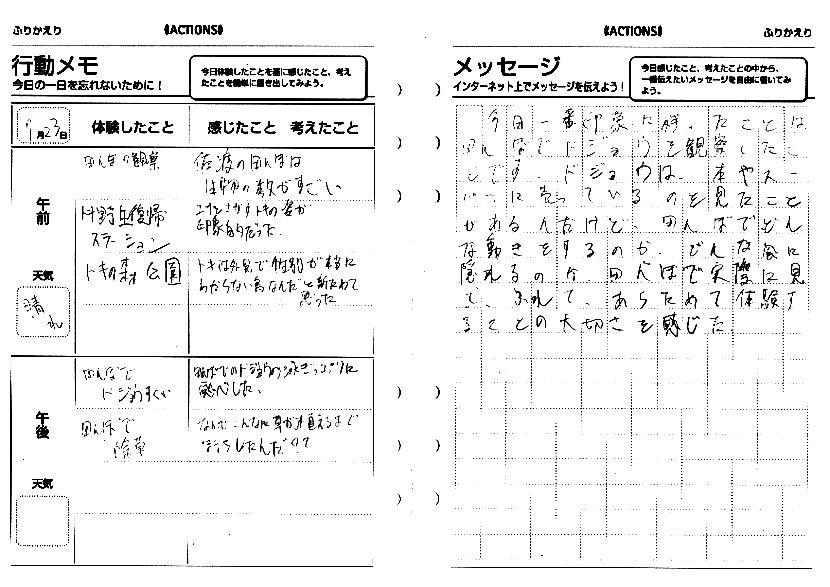 ふりかえり
《ACTIONS》
行動メモ
今日の一日を忘れないために！
今日体験したことを基に感じたこと、考え
たことを簡単に書き出してみよう。
月23日
体験したこと
感じたこと 考えたこと
午前
天気
晴れ
田んぼの観察
佐渡の田んぼは
生物の数がすごい
野生復帰
ステーション
トキの姿が
印象的だった
トキの森公園
トキは外見で性別が本当に
わからない鳥なんだと改めて
思った
午後
天気
田んぼで
ドジョウすくい
田んぼでのドジョウの泳ぎっぷりに
田んぼで
除草
なんでこんなに草が生えるまで
《ACTIONS》
ふりかえり
メッセージ
インターネット上でメッセージを伝えよう！
今日感じたこと、考えたことの中から、
一番伝えたいメッセージを自由に書いてみ
よう。
今日一番印象に残ったことは
田んぼでドジョウを観察したこ
とです。ドジョウは、本やスー
パーに売っているのを見たこと
があるんだけど、田んぼでどん
な動きをするのか、どんな風に
隠れるのか田んぼで実際に見
て、ふれて、あらためて体験す
ることの大切さを感じた。